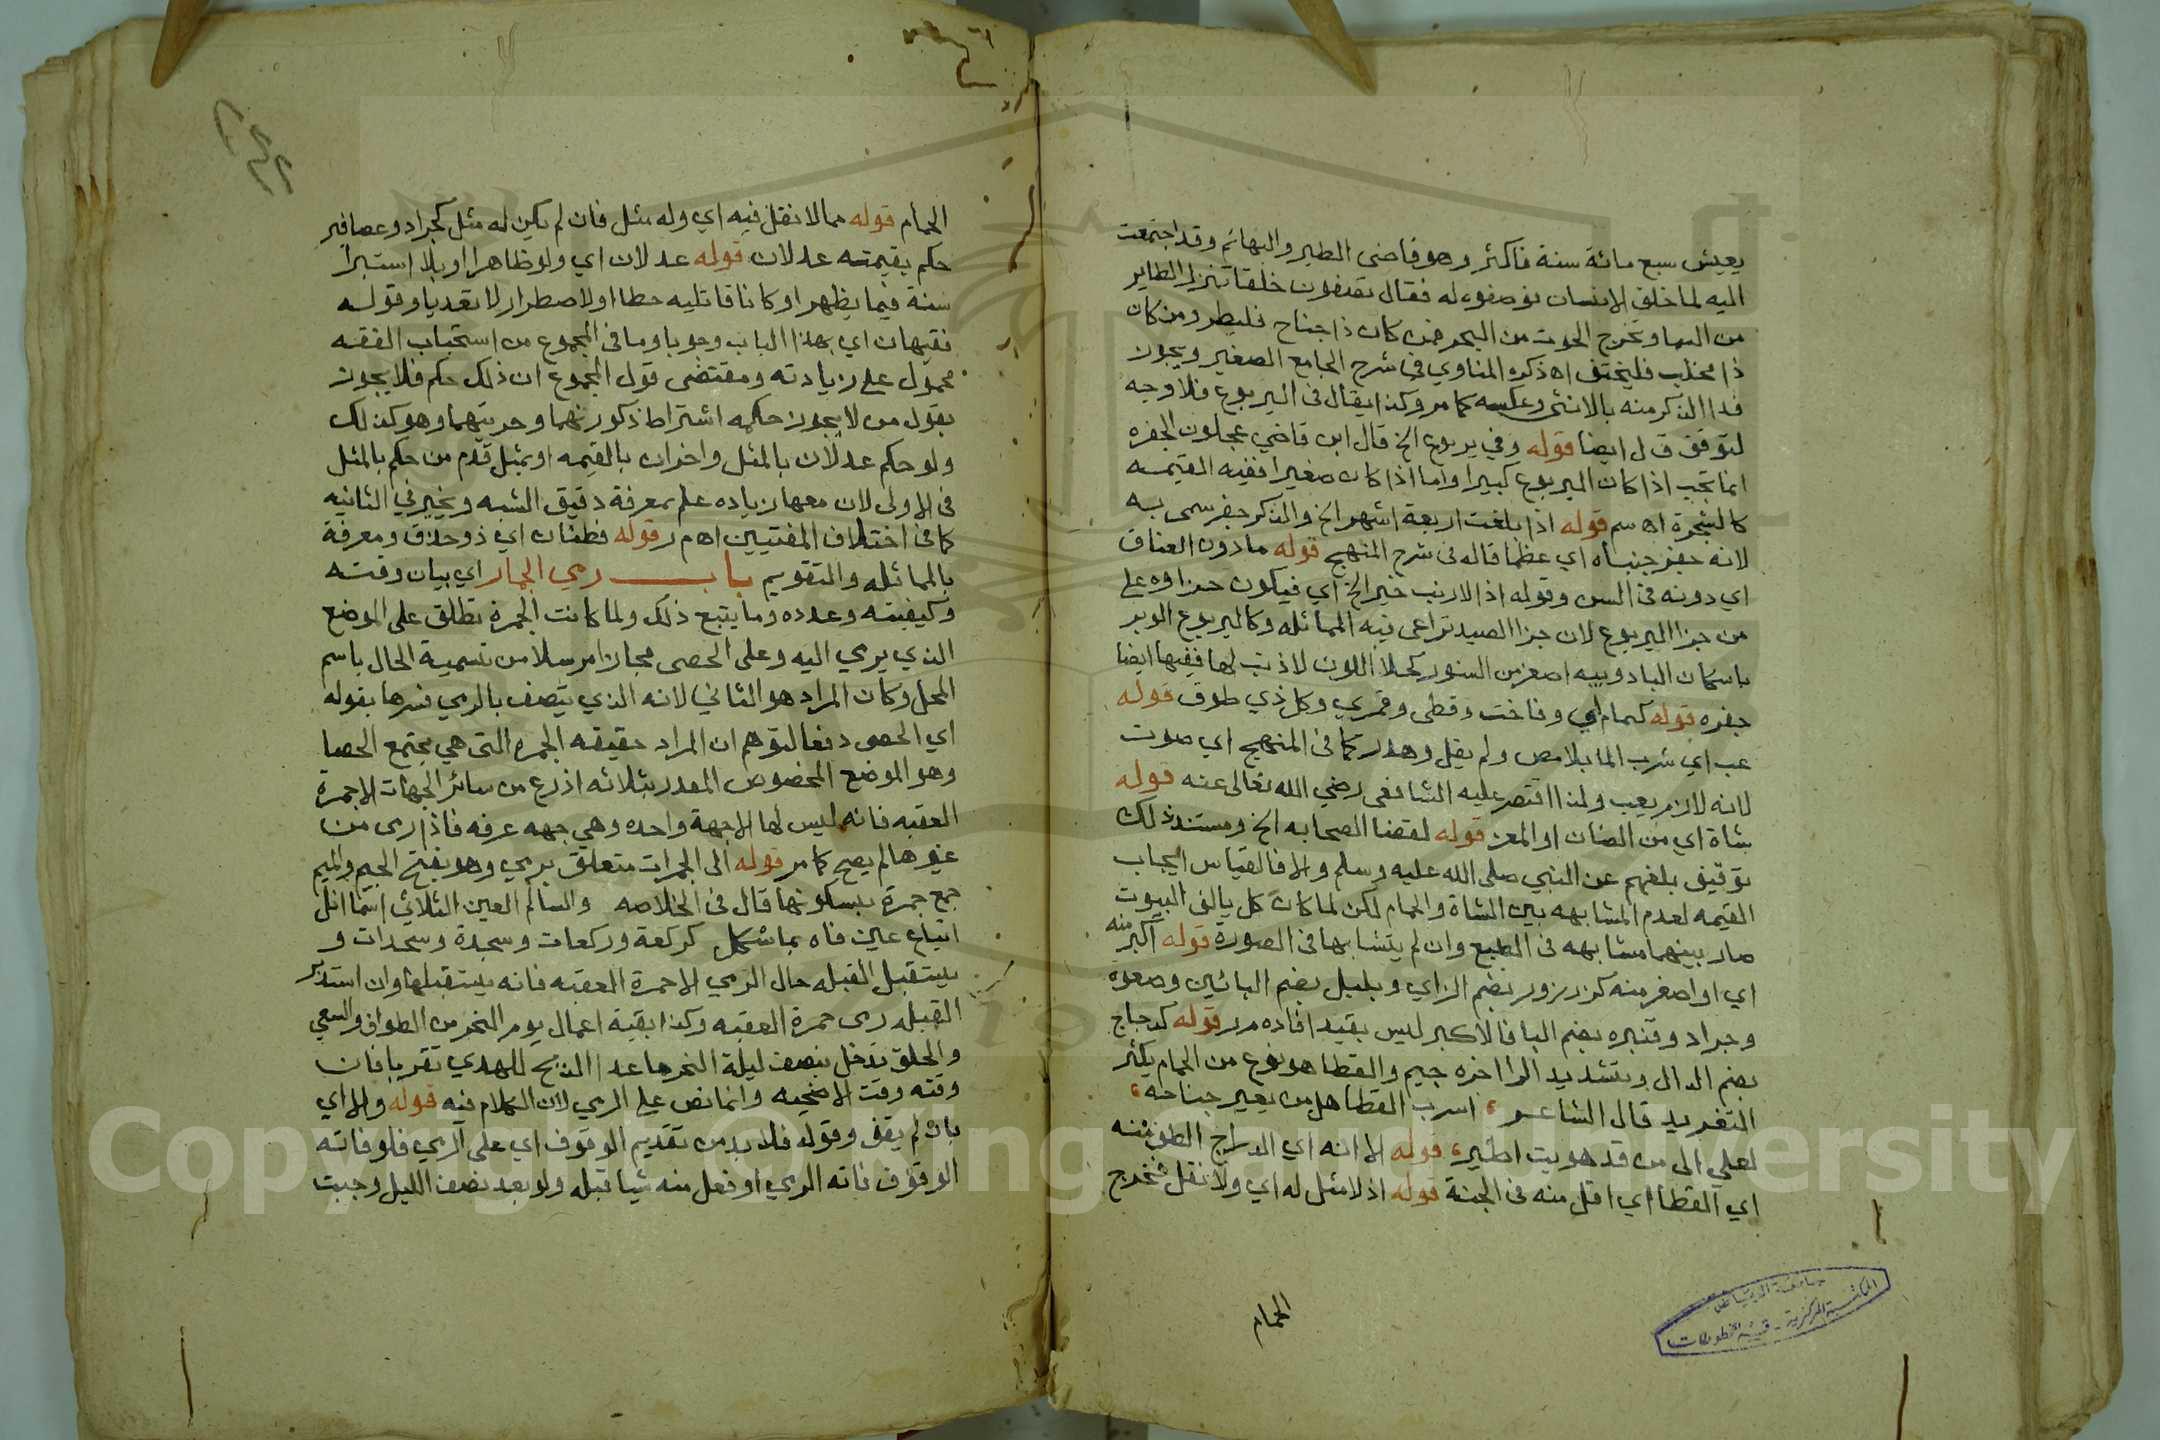 يعيش سبع مائة سنة فاكثر وهو قاضى الطير والبهائم وقد اجتمعت
اليه لما خلق الانسان فوصفوه له فقال تصفون خلقا ينزل الطاير
من السما ويخرج الحوت من البحر فمن كان ذا جناح فليطر ومن كان
ذا مخلب فليختف اه ذكره المناوي في شرح الجامع الصغير ويجوز
فدا الذكر منه بالانثى وعكسه كما مر وكذا يقال فى اليربوع فلا وجه
لتوقف ق ل ايضا قوله وفي يربوع الخ قال ابن قاضي عجلون الجفره
انما تجب اذا كان اليربوع كبيرا واما اذا كان صغيرا ففيه القيمه
كالشجرة اه سم قوله اذا بلغت اربعة اشهر الخ والذكر جفر سمى به
لانه جفر جنباه اي عظما قاله فى شرح المنهج قوله ما دون العناق
اي دونه فى السن وقوله اذ الارنب خير الخ اي فيكون جزاوه على
من جزا اليربوع لان جزا الصيد تراعى فيه المماثله وكاليربوع الوبر
باسكان البا دويبه اصغر من السنور كحلا اللون لا ذنب لها ففيها ايضا
جفره قوله كحمام اي وفاخت وقطى وقمري وكل ذي طوق قوله
عب اي شرب الما بلا مص ولم يقل وهدر كما فى المنهج اي صوت
لانه لازم يعب ولذا اقتصر عليه الشافعى رضي الله تعالى عنه قوله
شاة اي من الضان او المعز قوله لقضا الصحابه الخ ومستند ذلك
توقيف بلغهم عن النبي صلى الله عليه وسلم والا فالقياس ايجاب
القيمه لعدم المشابهه بين الشاة والحمام لكن لما كان كل يالف البيوت
صار بينهما مشابهه فى الطبع وان لم يتشابها فى الصورة قوله اكبر منه
اي او اصغر منه كزرزور بضم الزاي وبلبل بضم البائين وصعوة
وجراد وقنبره بضم البا فالاكبر ليس بقيد افاده م ر قوله كدجاج
بضم الدال وبتشديد الرا اخره جيم والقطا هو نوع من الحمام يكثر
التغريد قال الشاعر اسرب القطا هل من يعير جناحه
لعلي الى من قد هويت اطير قوله الا انه اي الدراج الطف منه
اي القطا اي اقل منه فى الجثة قوله اذ لا مثل له اي ولا نقل فخرج
الحمام
جامعة الرياض
المكتبة المركزية - قسم المخطوطات
الحمام قوله مما لا نقل فيه اي وله مثل فان لم يكن له مثل كجراد وعصافير
حكم بقيمته عدلان قوله عدلان اي ولو ظاهرا او بلا استبرا
سنة فيما يظهر او كانا قاتليه خطا او لاضطرار لا تعديا وقوله
فقيهان اي بهذا الباب وجوبا وما فى المجموع من استحباب الفقه
محمول على زيادته ومقتضى قول المجموع ان ذلك حكم فلا يجوز
بقول من لا يجوز حكمه اشتراط ذكورتهما وحريتهما وهو كذلك
ولو حكم عدلان بالمثل واخران بالقيمه او بمثل قدم من حكم بالمثل
فى الاولى لان معهما زياده علم بمعرفة دقيق الشبه ويخير في الثانيه
كما فى اختلاف المفتيين اه م ر قوله فطنان اي ذو حذاق ومعرفة
بالمماثله والتقويم باب رمي الجمار اي بيان وقته
وكيفيته وعدده وما يتبع ذلك ولما كانت الجمرة تطلق على الموضع
الذي يرمي اليه وعلى الحصى مجازا مرسلا من تسمية الحال باسم
المحل وكان المراد هو الثاني لانه الذي يتصف بالرمي فسرها بقوله
اي الحصى دفعا لتوهم ان المراد حقيقه الجمره التى هي مجتمع الحصا
وهو الموضع المخصوص المقدر بثلاثه اذرع من سائر الجهات الا جمرة
العقبه فانه ليس لها الا جهة واحده وهي جهه عرفه فاذا رمى من
غيرها لم يصح كما مر قوله الى الجمرات متعلق برمي وهو بفتح الجيم والميم
جمع جمرة بسكونها قال فى الخلاصه والسالم العين الثلاثي اسما انل
اتباع عين فاه بما شكل كركعة وركعات وسجدة وسجدات و
يستقبل القبله حال الرمي الا جمرة العقبه فانه يستقبلها وان استدبر
القبله رمى جمرة العقبه وكذا بقية اعمال يوم النحر من الطواف والسعي
والحلق تدخل بنصف ليلة النحر ما عدا الذبح للهدي تقربا فان
وقته وقت الاضحيه وانما نص على الرمي لان الكلام فيه قوله والا اي
بان لم يقف وقوله فلا بد من تقديم الوقوف اي على الرمي فلو فاته
الوقوف فاته الرمي او فعل منه شيا قبله ولو بعد نصف الليل وجبت
Copyright © King Saud University